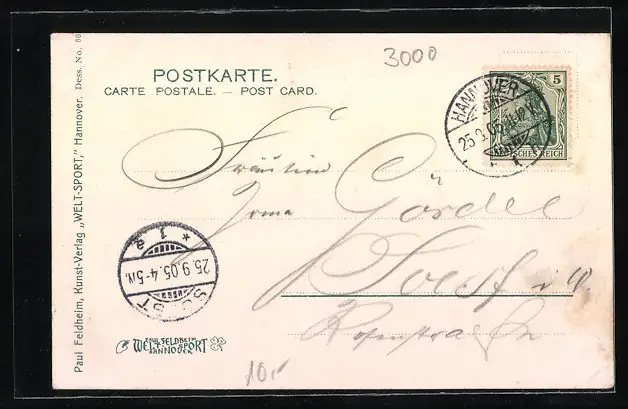 3000
POSTKARTE.
CARTE POSTALE. — POST CARD.
5
DEUTSCHES REICH
HANNOVER
25.9.05
Fräulein
Irma Gördel
Soest i. W.
Rosenstra
SOEST
25.9.05.4-5N.
* 1 a
Paul Feldheim, Kunst-Verlag „WELT-SPORT," Hannover. Dess. No. 80
PAUL FELDHEIM
WELT-SPORT
HANNOVER
10.-